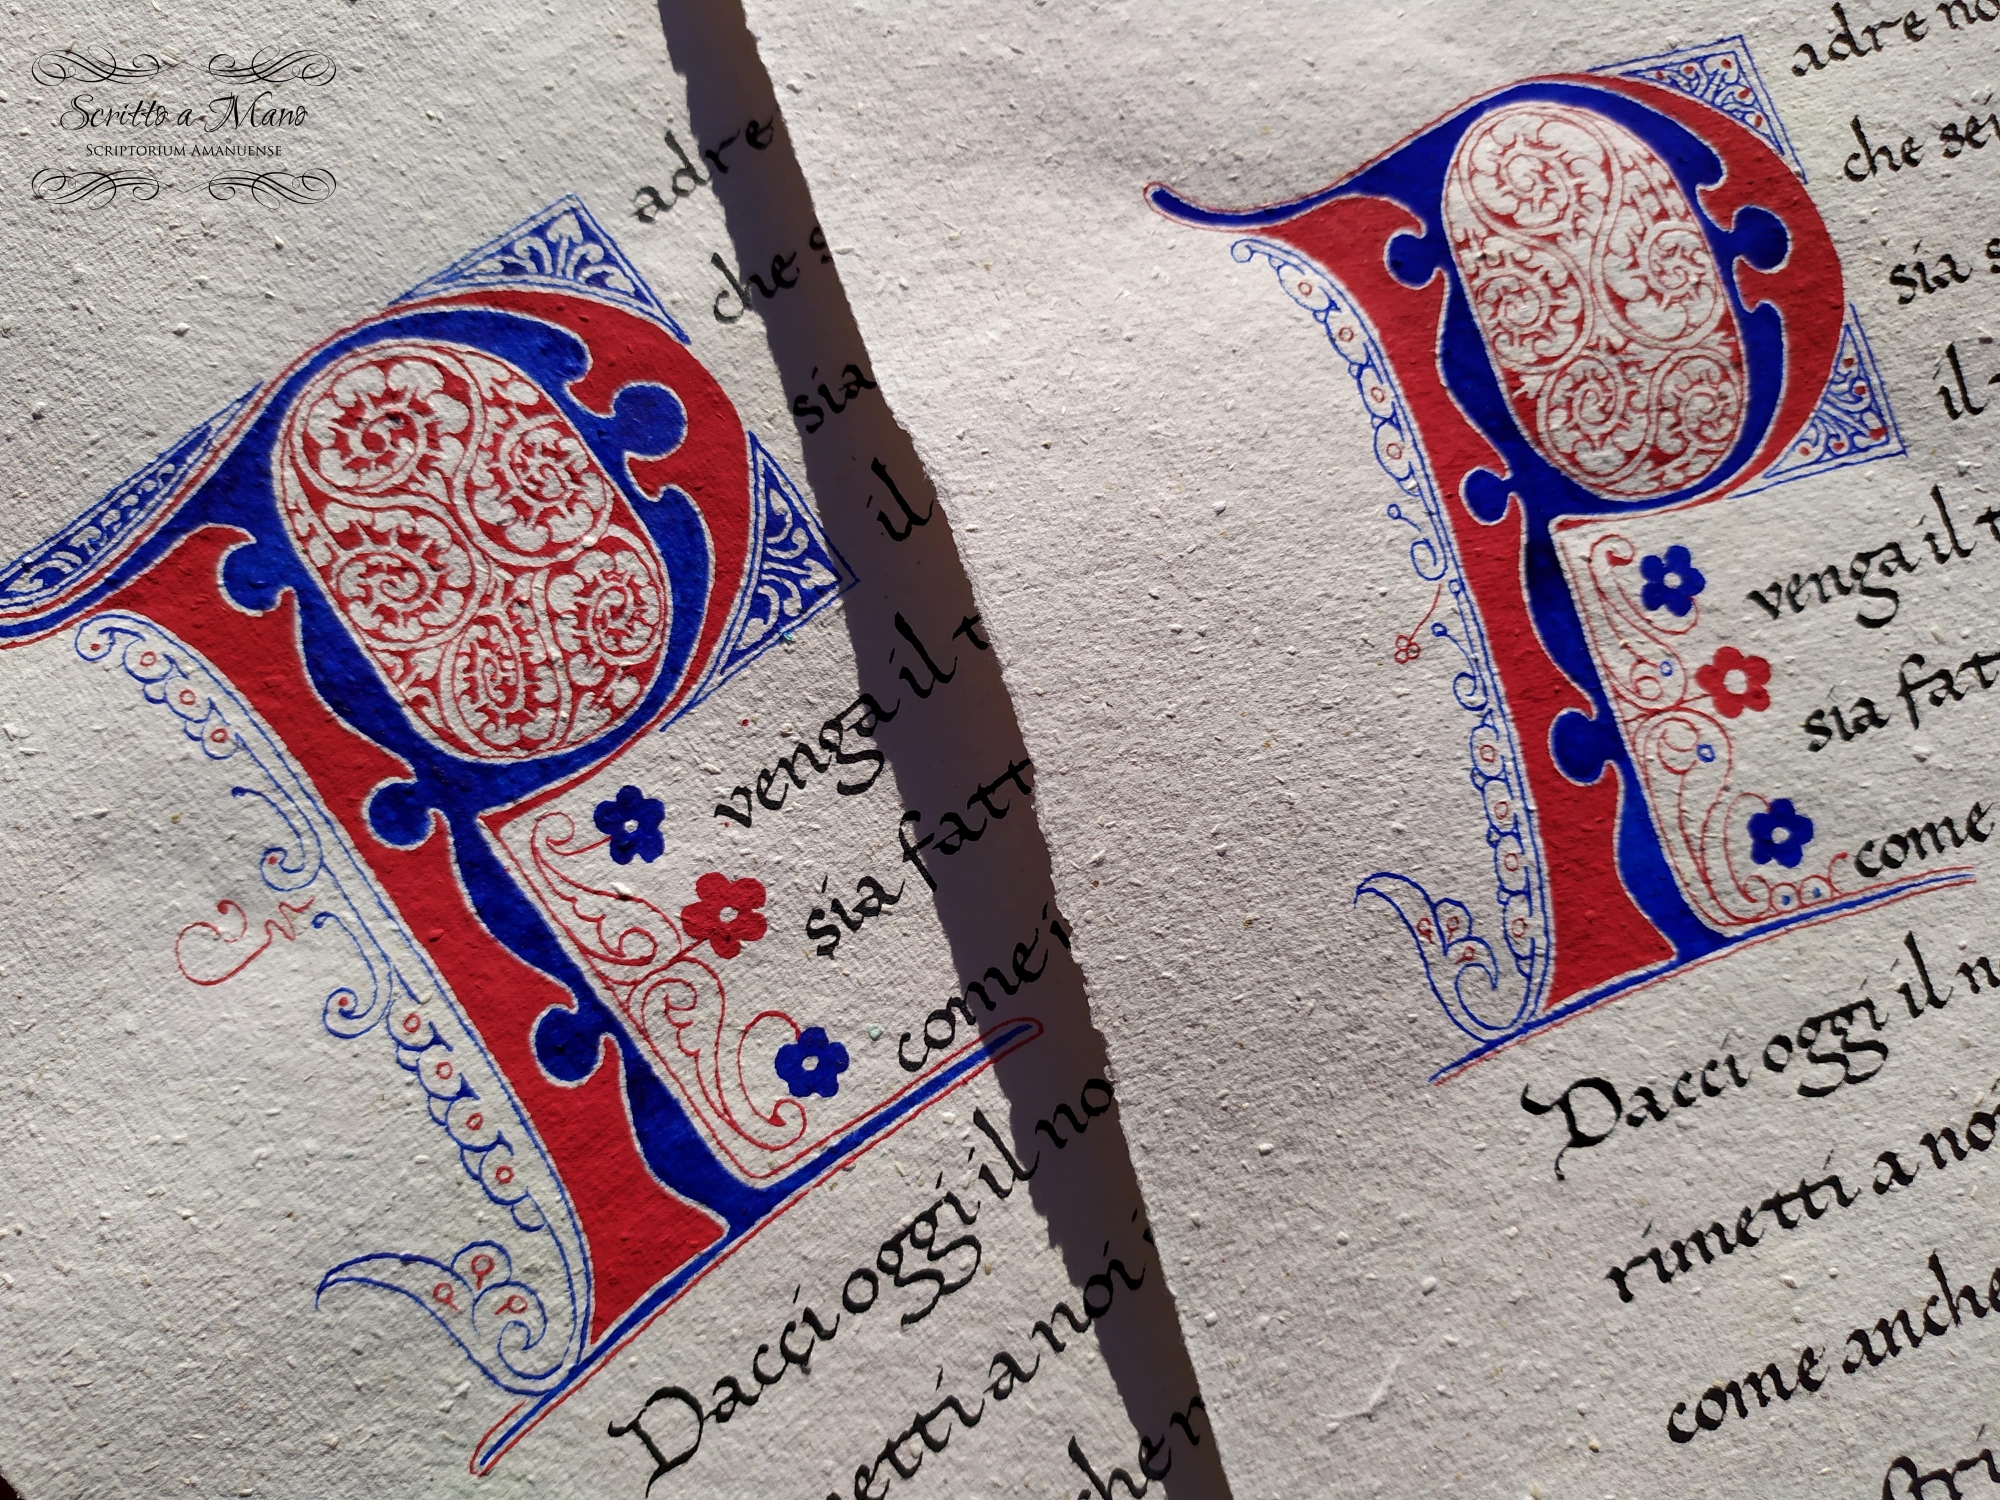 Scritto a Mano
SCRIPTORIUM AMANUENSE
P
adre
che s
sia
il
venga il t
sia fatt
come i
Dacci oggi il no
etti a noi
che n
P
adre no
che sei
sia s
il
venga il t
sia fatt
come
Dacci oggi il n
rimetti a noi
come anche